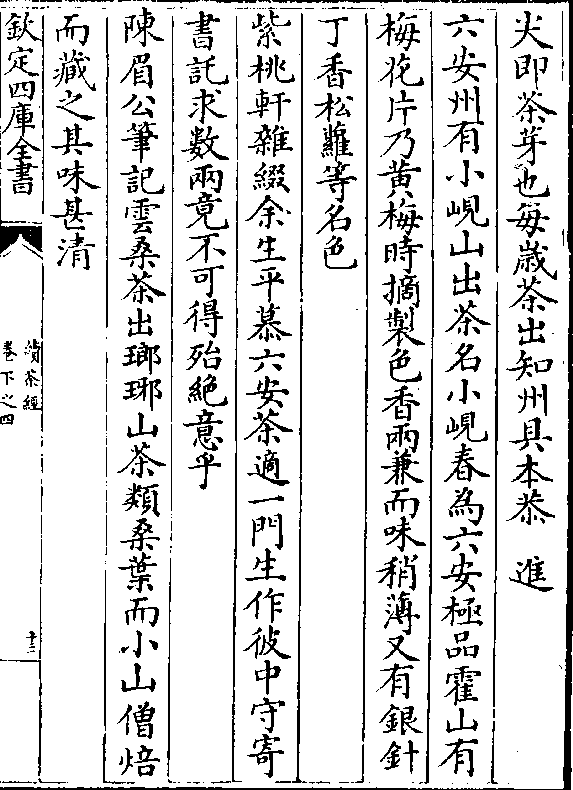 尖即茶芽也每歲茶出知州具本恭　進
六安州有小峴山出茶名小峴春為六安極品霍山有
梅花片乃黄梅時摘製色香兩兼而味稍薄又有銀針
丁香松蘿等名色
紫桃軒雜綴余生平慕六安茶適一門生作彼中守寄
書託求數兩竟不可得殆絶意乎
陳眉公筆記雲桑茶出瑯琊山茶類桑葉而小山僧焙
而藏之其味甚清
欽定四庫全書
續茶經
卷下之四
十三